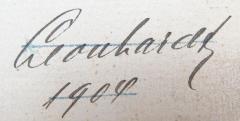 Leonhardt
1904